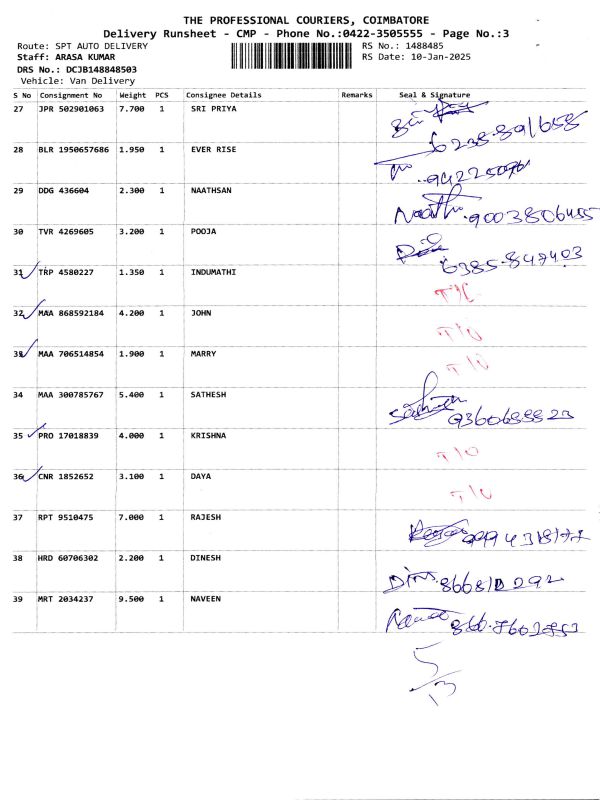 THE PROFESSIONAL COURIERS, COIMBATORE
Delivery Runsheet - CMP - Phone No.:0422-3505555 - Page No.:3
Route: SPT AUTO DELIVERY RS No.: 1488485
Staff: ARASA KUMAR RS Date: 10-Jan-2025
DRS No.: DCJB148848503
Vehicle: Van Delivery
S No Consignment No Weight PCS Consignee Details Remarks Seal & Signature
27 JPR 502901063 7.700 1 SRI PRIYA
28 BLR 1950657686 1.950 1 EVER RISE
29 DDG 436604 2.300 1 NAATHSAN
30 TVR 4269605 3.200 1 POOJA
31 TRP 4580227 1.350 1 INDUMATHI
32 MAA 868592184 4.200 1 JOHN T/O
33 MAA 706514854 1.900 1 MARRY T/O
34 MAA 300785767 5.400 1 SATHESH
35 PRO 17018839 4.000 1 KRISHNA T/O
36 CNR 1852652 3.100 1 DAYA T/O
37 RPT 9510475 7.000 1 RAJESH
38 HRD 60706302 2.200 1 DINESH
39 MRT 2034237 9.500 1 NAVEEN
5/13